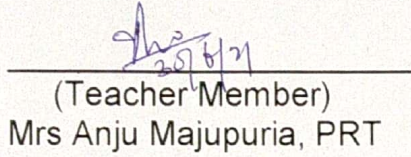 (Teacher Member)
Mrs Anju Majupuria, PRT